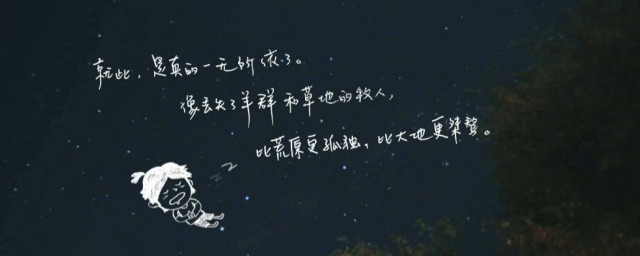 就此，是真的一无所依了。
像丢失了羊群和草地的牧人，
比荒原更孤独，比大地更桀骜。
z z